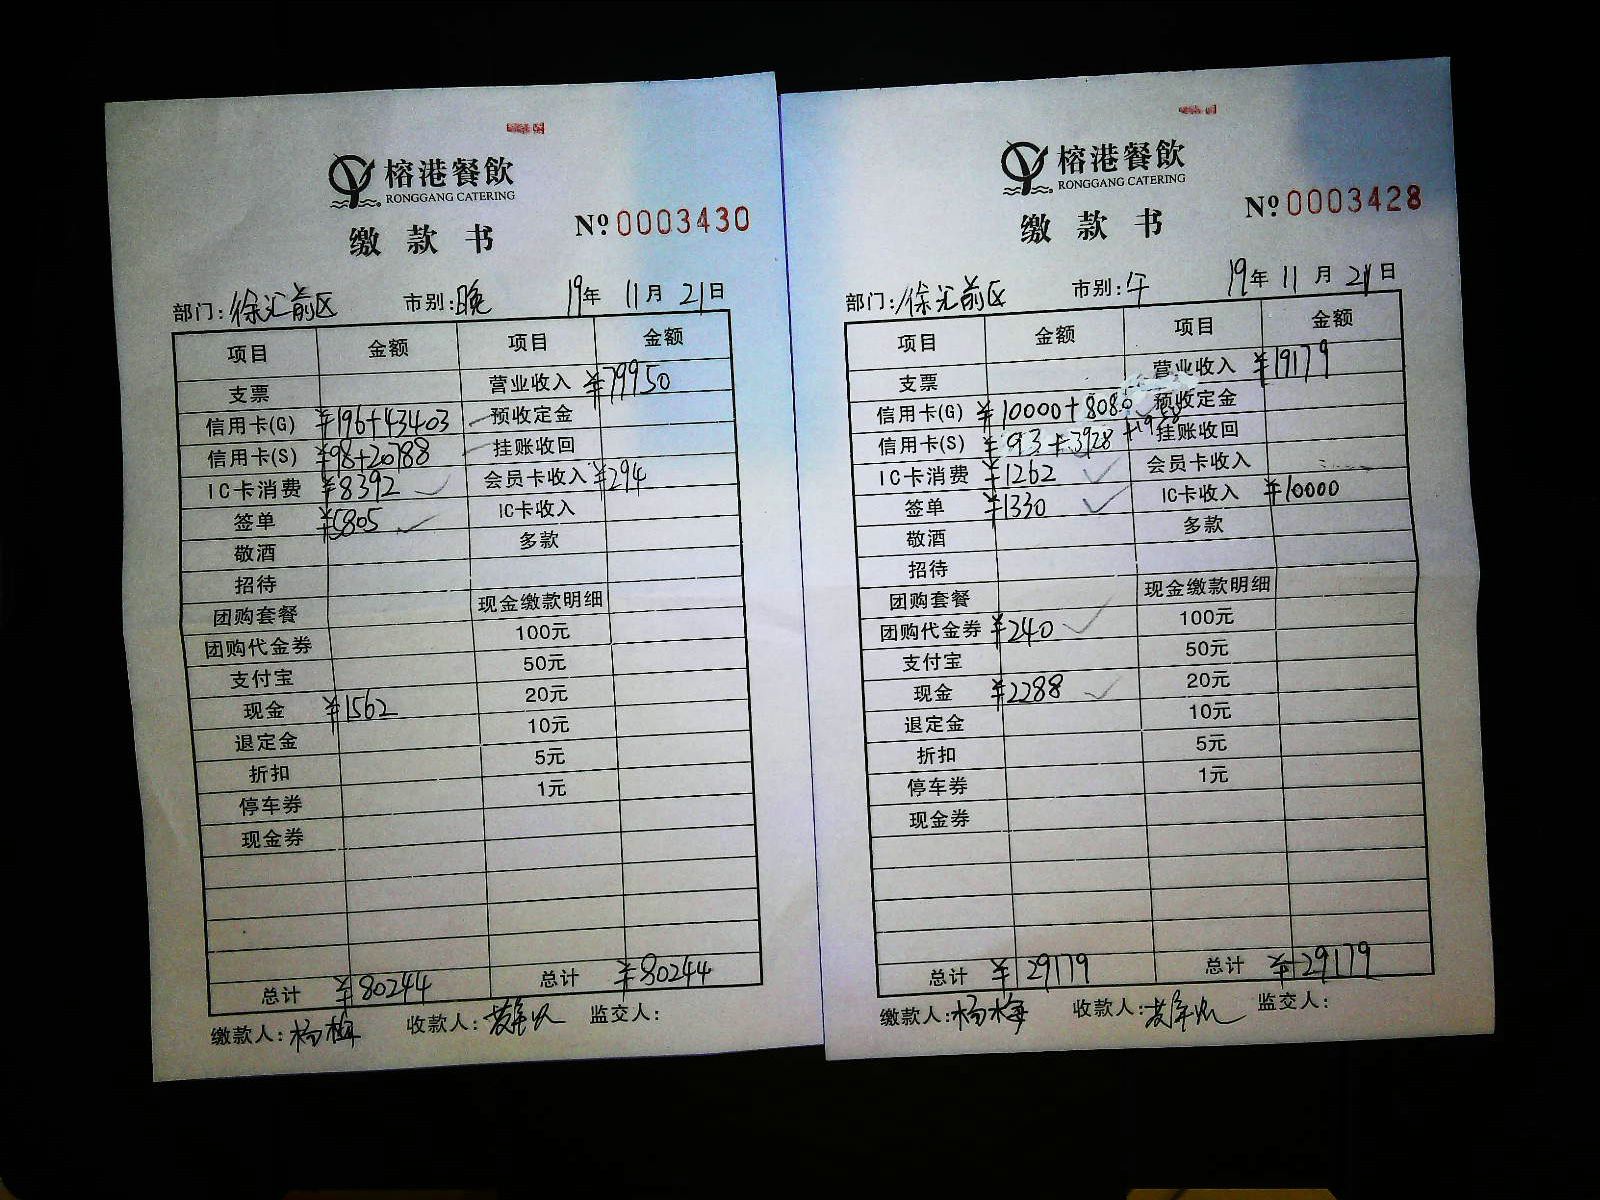 榕港餐飲
RONGGANG CATERING
缴款书
№0003430
部门:徐汇前区 市别:晚 19年 11月 21日
项目 金额 项目 金额
支票 营业收入 ¥79950
信用卡(G) ¥196+43403 预收定金
信用卡(S) ¥98+20788 挂账收回
IC卡消费 ¥8392 会员卡收入 ¥294
签单 ¥5805 IC卡收入
敬酒 多款
招待
团购套餐 现金缴款明细
团购代金券 100元
支付宝 50元
现金 ¥1562 20元
退定金 10元
折扣 5元
停车券 1元
现金券
总计 ¥80244 总计 ¥80244
缴款人:杨梅 收款人: 监交人:
榕港餐飲
RONGGANG CATERING
缴款书
№0003428
部门:徐汇前区 市别:午 19年 11月 21日
项目 金额 项目 金额
支票 营业收入 ¥19179
信用卡(G) ¥10000+8080 预收定金
信用卡(S) ¥ 93+3928+1958 挂账收回
IC卡消费 ¥1262 会员卡收入
签单 ¥1330 IC卡收入 ¥10000
敬酒 多款
招待
团购套餐 现金缴款明细
团购代金券 ¥240 100元
支付宝 50元
现金 ¥2288 20元
退定金 10元
折扣 5元
停车券 1元
现金券
总计 ¥29179 总计 ¥29179
缴款人:杨梅 收款人: 监交人: